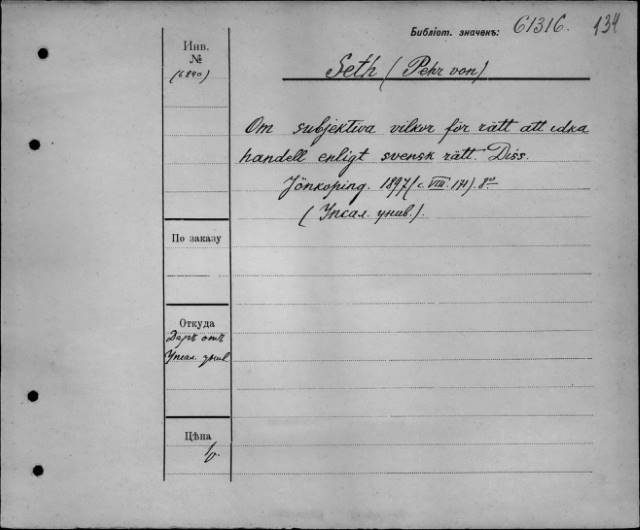 Библіот. значекъ: 61316. 134
Инв.
№
(6840)
Seth (Pehr von)
Om subjektiva vilkor för rätt att idka
handell enligt svensk rätt. Diss.
Jönköping. 1897 (c. VIII. 171). 8°
(Упсал. унив.).
По заказу
Откуда
Даръ отъ
Упсал. унив
Цѣна